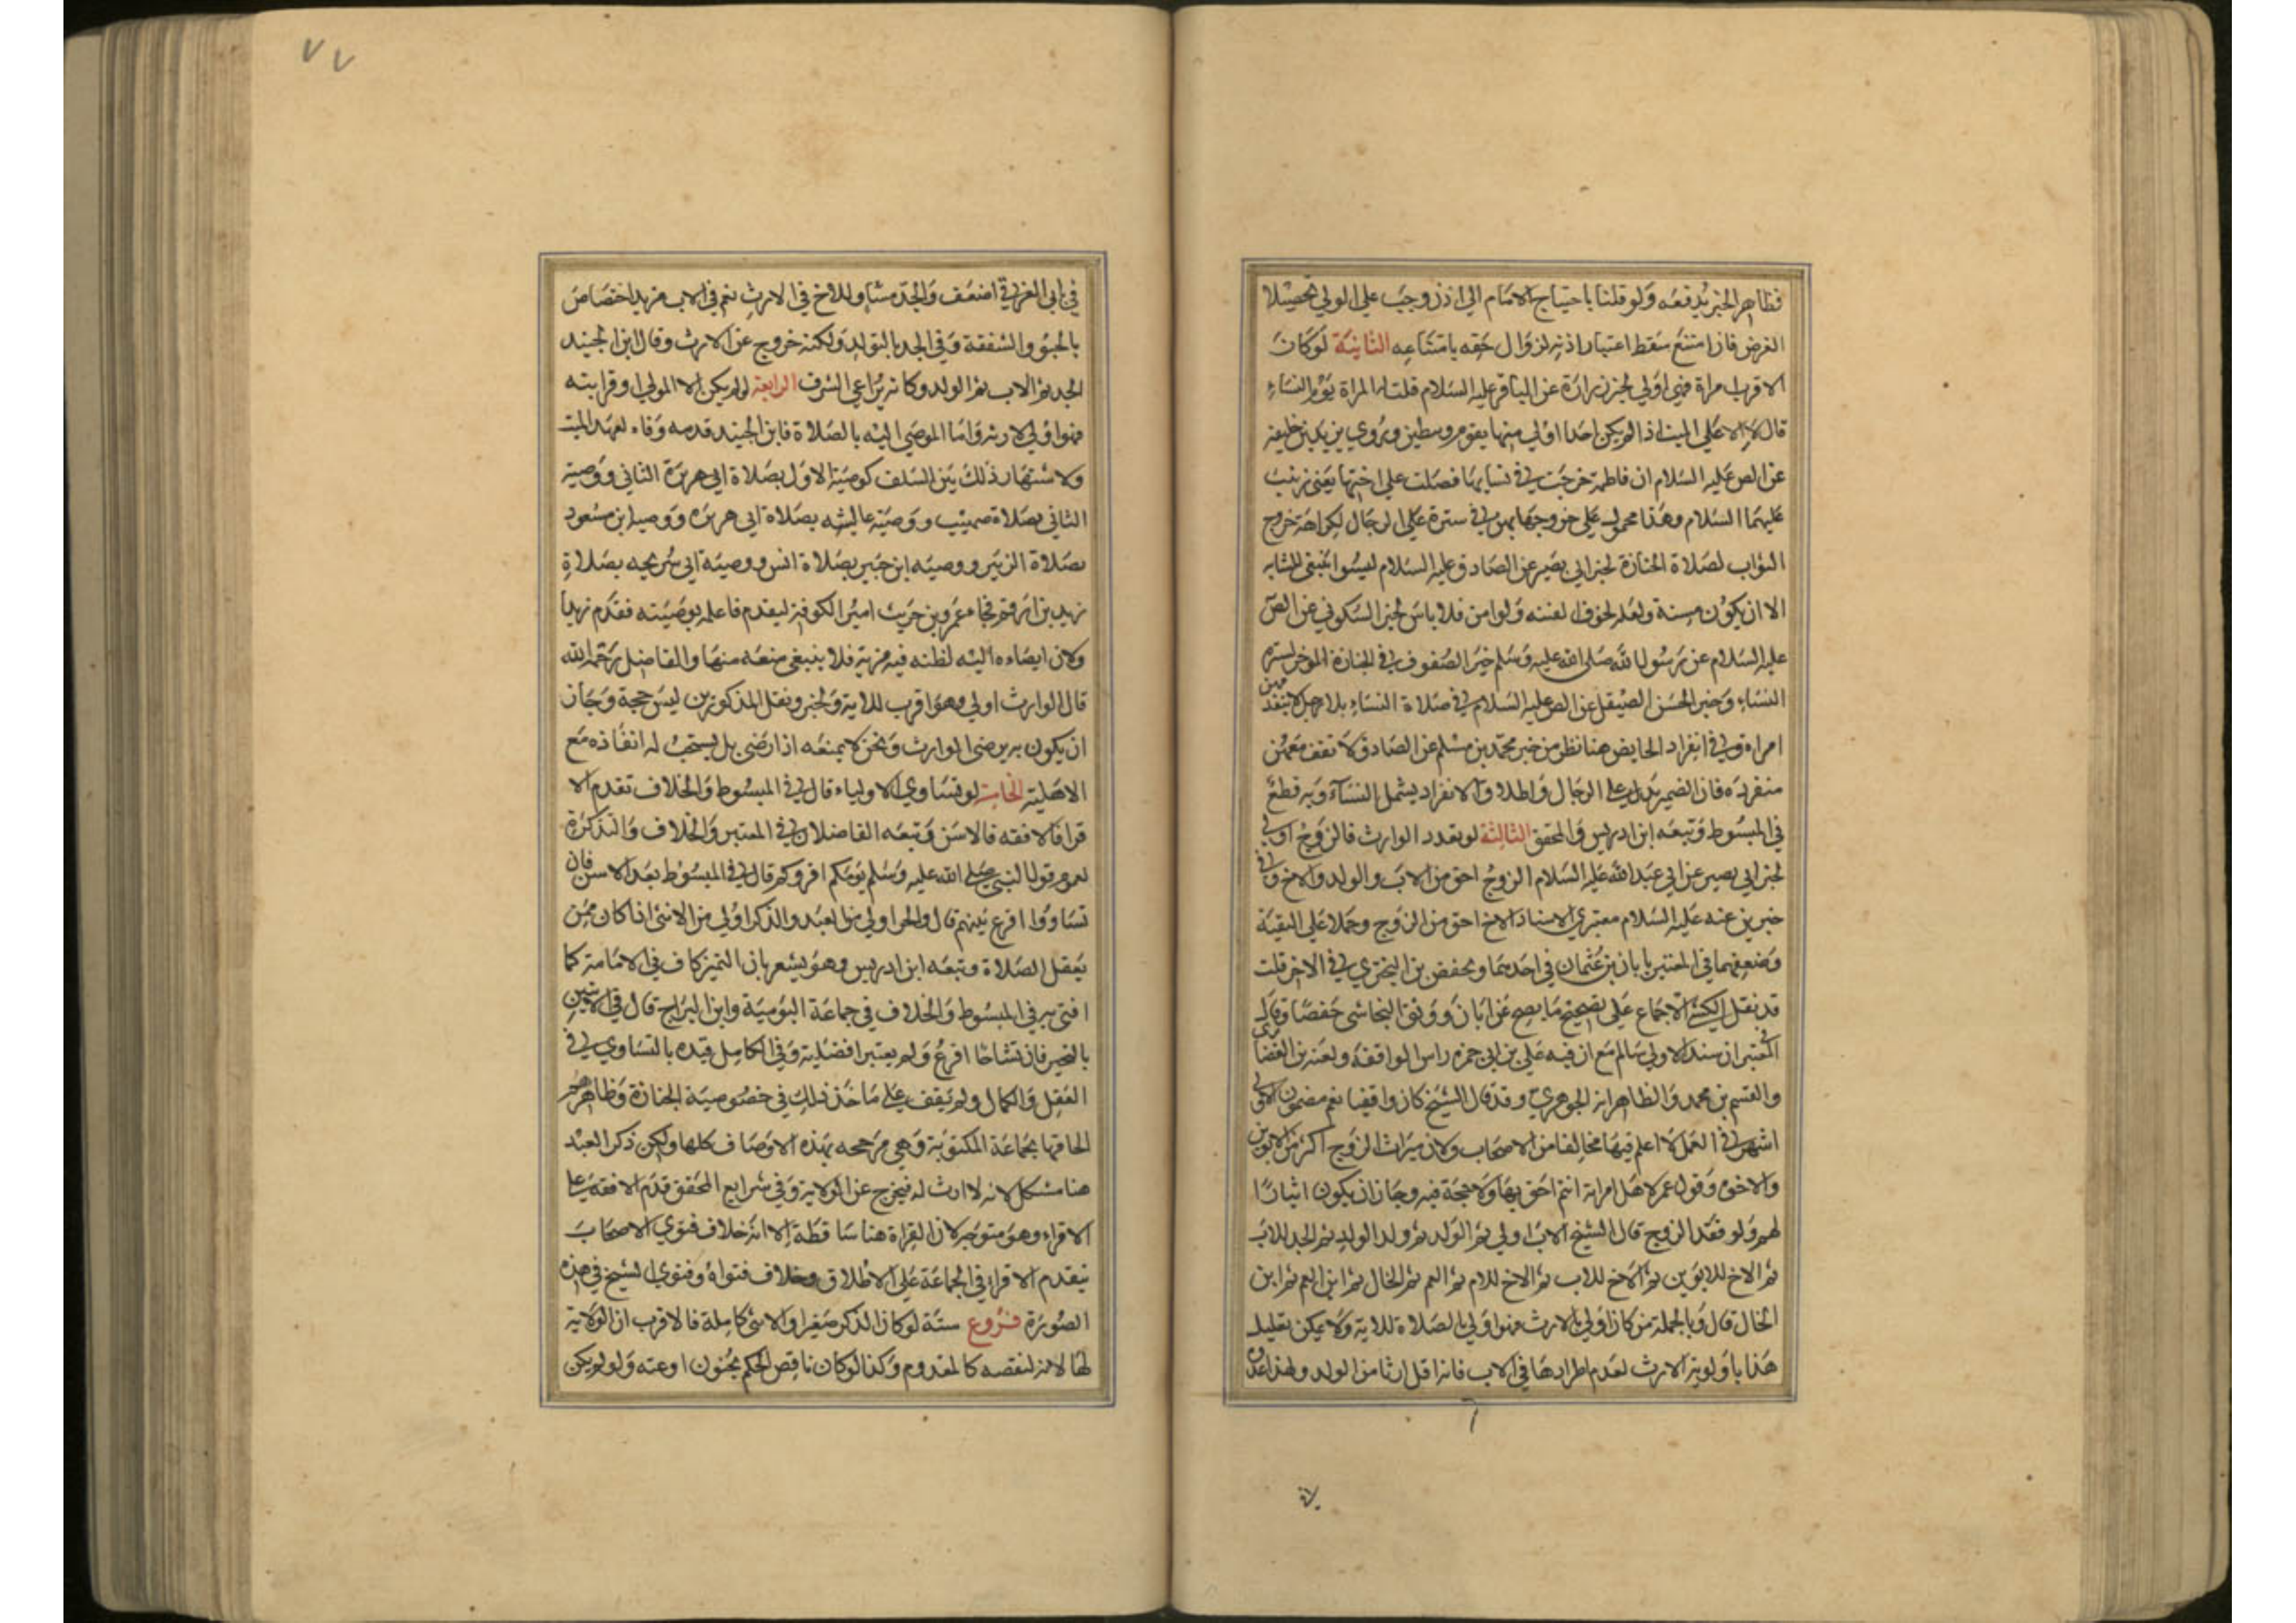 فظاهر الخبر يدفعه ولو قلنا باحتياج الامام الي اذن وجب علي الولي تحصيلا
الغرض فان امتنع سقط اعتبار اذنه لزوال حقه بامتناعه الثانية لو كان
الاقرب امراة فهي اولي لخبر زرارة عن الباقر عليه السلام قلت المراة يؤم النساء
قال لا الا علي الميت اذا لم يكن احدا اولي منها يقوم وسطهن ويروي بن يزيد بن خليفة
عن الص عليه السلام ان فاطمة خرجت في نسايها فصلت علي اختها يعني زينب
عليهما السلام وهذا محمول علي خروجها بهن في سترة علي الرجال لكراهة خروج
الثواب لصلاة الجنازة لخبر ابي بصير عن الصادق عليه السلام ليسوا ينبغي للشابه
الا ان يكون مسنة ولعله لخوف الفتنه ولو امن فلا باس لخبر السكوني عن الص
عليه السلام عن رسول الله صلى الله عليه وسلم خير الصفوف في الجنازة الموخر لستره
النساء وخبر الحسن الصيقل عن الص عليه السلام في صلاة النساء بلا رجل لا يتقد
مهن
امراة وفي انفراد الحايض هنا نظر من خبر محمد بن مسلم عن الصادق لا تقف معهن
منفردة فان الضمير يدل علي الرجال واطلاق الانفراد يشمل النساء وبه قطع
في المبسوط وتبعه ابن ادريس والمحقق الثالثة لو تعدد الوارث فالزوج اولي
لخبر ابي بصير عن ابي عبد الله عليه السلام الزوج احق من الاب والولد والاخ وفي
خبرين عنه عليه السلام معتبري الاسناد الاخ احق من الزوج وحملا علي التقية
وضعفهما في المعتبر بابان بن عثمان في احدهما وبحفص بن البختري في الاخر قلت
قد نقل الكشي الاجماع علي تصحيح ما يصح عن ابان ووثق النجاشي حفصا وقال
في المعتبر ان سند الاولي سالم مع ان فيه علي بن ابي حمزه راس الواقفة ولعنه بن الغضا
ئري
والقسم بن محمد والظاهر انه الجوهري وقد قال الشيخ كان واقفيا نعم مضمون الاولي
اشهر في العمل لا اعلم فيها مخالفا من الاصحاب ولان ميراث الزوج اكثر من الابوين
والاخوه وقول عمر لاهل امراته انتم احق بها ولا حجة فيه وجاز ان يكون اثبارا
لهم ولو فقد الزوج قال الشيخ الاب اولي ثم الولد ثم ولد الولد ثم الجد للاب
ثم الاخ للابوين ثم الاخ للاب ثم الاخ للام ثم العم ثم الخال ثم ابن العم ثم ابن
الخال قال وبالجملة من كان اولي بالارث فهو اولي بالصلاة للاية ولا يمكن تقليل
هذا باولوية الارث لعدم اطرادها في الاب فانه اقل ارثا من الولد ولهذا عد
٧٧
في ابي الغربي اضعف والجد مساو للاخ في الارث نعم في الاب مزيد اختصاص
بالحنو والشفقة وفي الجد بالتولد ولكنه خروج عن الارث وقال ابن الجنيد
الجد ثم الاب ثم الولد وكانه يراعي الشرف الرابعة لو لم يكن الا المولي او قرابته
فهو اولي لارثه واما الموصي اليه بالصلاة فابن الجنيد قدمه وفاء لعهد الميت
ولاشتهار ذلك بين السلف كوصية الاول بصلاة ابي هريرة الثاني ووصية
الثاني بصلاة صهيب ووصية عايشه بصلاة ابي هريره ووصيه ابن مسعود
بصلاة الزبير ووصيه ابن جبير بصلاة انس ووصية ابي شريحه بصلاة
زيد بن ارقم فجاء عمرو بن حريث امير الكوفة ليقدم فاعلم بوصيته فقدم زيدا
ولان ايصاءه اليه لظنه فيه مزية فلا ينبغي منعه منها والفاضل رحمه الله
قال الوارث اولي وهو اقرب للاية ولخبر ونقل المذكورين ليس حجة وجاز
ان يكون برضي الوارث ونحن لا نمنعه اذا رضي بل يستحب له انفاذه مع
الاهلية الخامسة لو تساوي الاولياء قال في المبسوط والخلاف تقدم الا
قرا فالافقه فالاسن وتبعه الفاضلان في المعتبر والخلاف والتذكرة
لعموم قول النبي صلى الله عليه وسلم يؤمكم اقروكم قال في المبسوط بعد الاسن فان
تساووا اقرع بينهم قال والحر اولي من العبد والذكر اولي من الانثى اذا كان ممن
يعقل الصلاة وتبعه ابن ادريس وهو يشعر بان التميز كاف في الامامة كما
افتى به في المبسوط والخلاف في جماعة اليومية وابن البراج قال في الاثنين
بالتخير فان تشاحا اقرع ولم يعتبر افضلية وفي الكامل قيده بالتساوي في
العقل والكمال ولم يقف علي ماخذ ذلك في خصوصية الجنازة وظاهرهم
الحاقها بجماعة المكتوبة وهي مرجحه بهذه الاوصاف كلها ولكن ذكر العبد
هنا مشكل لانه لا ارث له فيخرج عن الولاية وفي شرايع المحقق قدم الافقه علي
الاقراء وهو متوجه لان القراة هنا ساقطة الا انه خلاف فتوي الاصحاب
بتقدم الاقرا في الجماعة علي الاطلاق وخلاف فتواه وفتوي الشيخ في هذه
الصورة فروع ستة لو كان الذكر صغيرا والانثى كاملة فالاقرب ان الولاية
لها لانه لنقصه كالمعدوم وكذا لو كان ناقص الحكم بجنون او عته ولو لم يكن